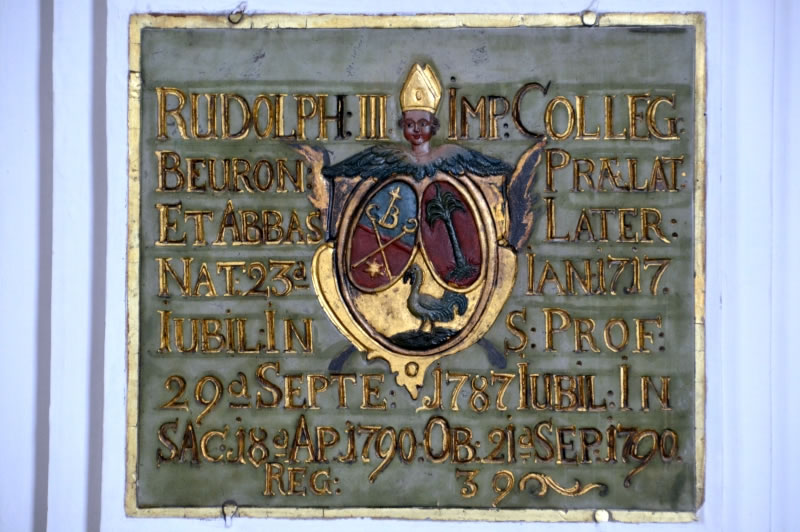 RUDOLPH: III. IMP: COLLEG:
BEURON: PRÆLAT:
ET ABBAS LATER:
NAT. 23.ª IAN. 1717.
IUBIL: IN S: PROF:
29.ª SEPTE: 1787. IUBIL: IN
SAC. 18.ª AP. 1790. OB: 21.ª SEP: 1790.
REG: 39
B